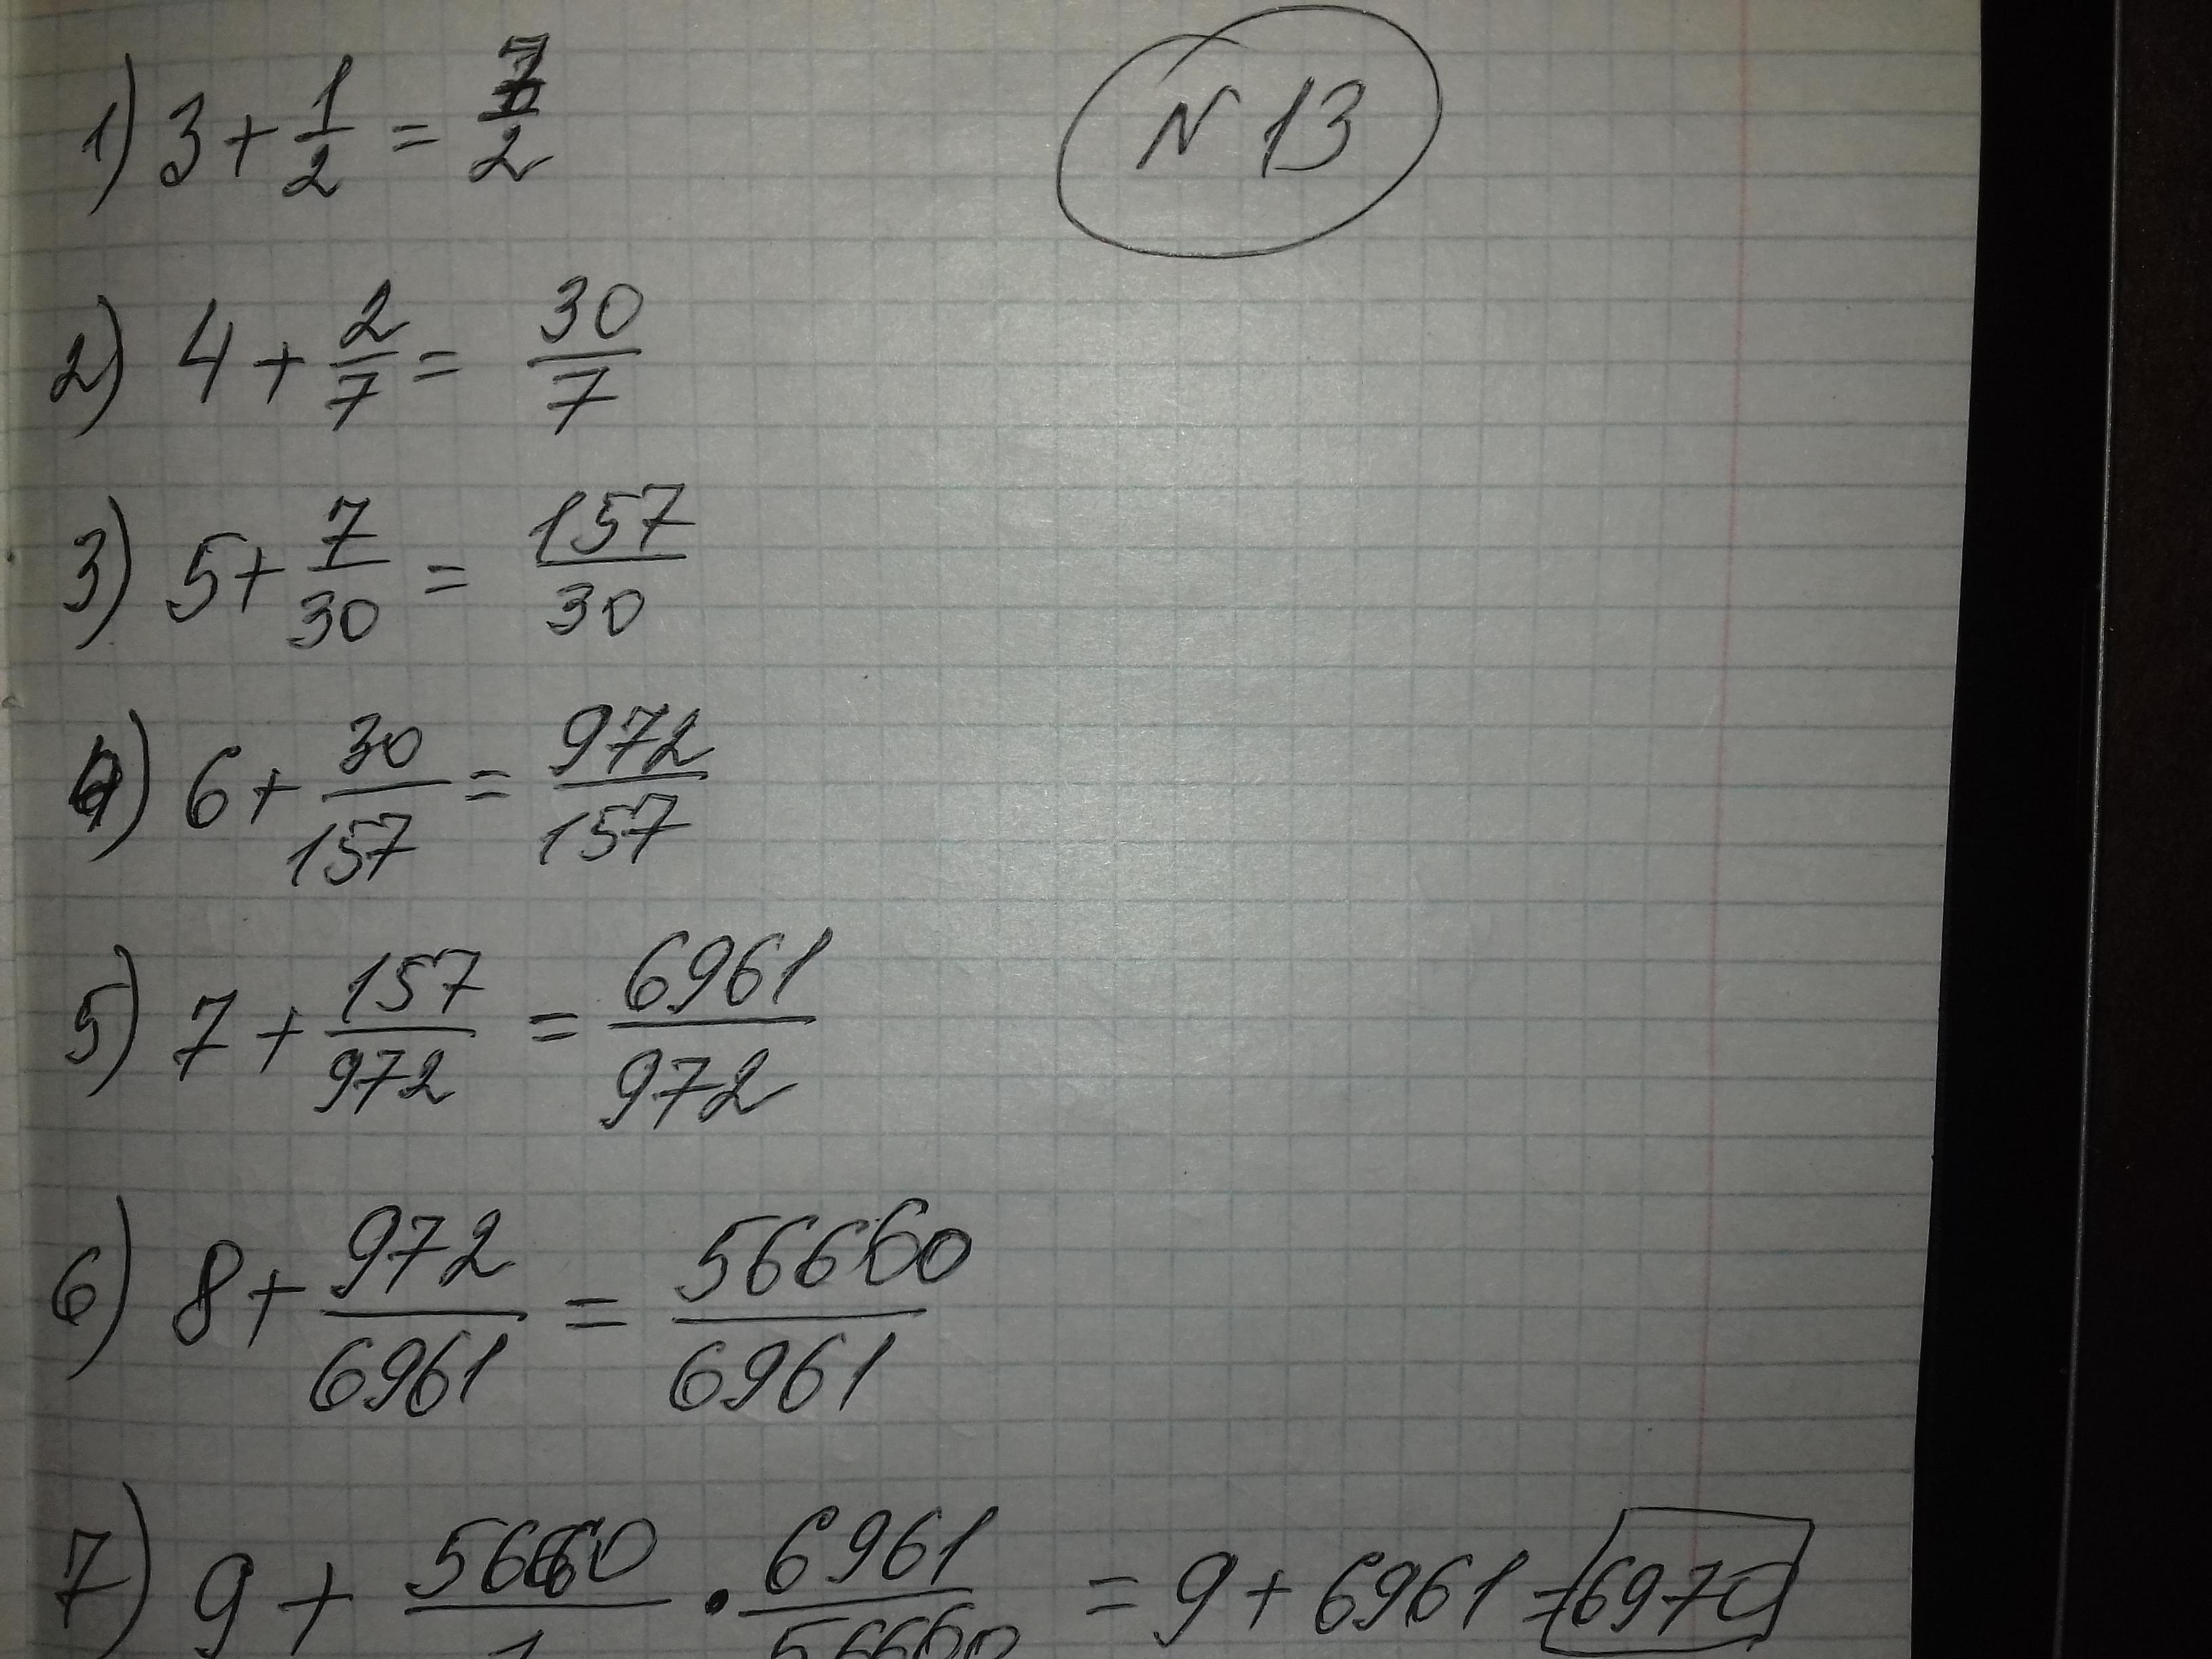 N 13
1) 3 + 1/2 = 7/2
2) 4 + 2/7 = 30/7
3) 5 + 7/30 = 157/30
4) 6 + 30/157 = 972/157
5) 7 + 157/972 = 6961/972
6) 8 + 972/6961 = 56660/6961
7) 9 + 56660/1 · 6961/56660 = 9 + 6961 = 6970